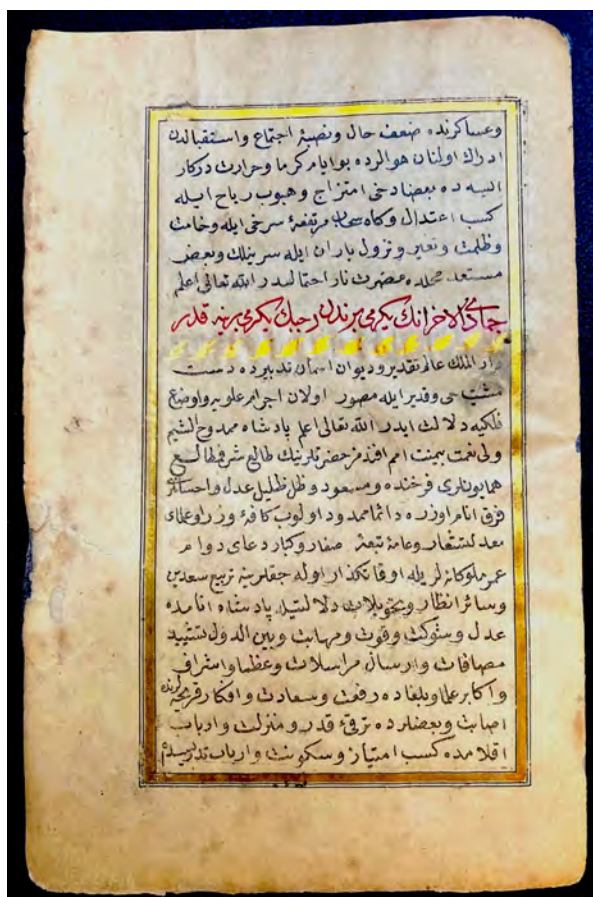 وعساکرنده ضعف حال ونصبهٔ اجتماع واستقبالدن
ادراك اولنان هوالرده بو ایام کرما وحرارت درکار
ایسه ده بعضا دخی امتزاج وهبوب ریاح ایله
کسب اعتدال وکاه سحاب مرتفعهٔ سرخی ایله وخامت
وظلمت وتغیر ونزول باران ایله سرینلك وبعض
مستعد محلده مضرت نار احتمالیدر الله تعالی اعلم
جماذی الاخرانك یکرمی برندن رجبك یکرمی برینه قدر
دار الملك عالم تقدیر ودیوان اسمان تدبیرده دست
وقدیر ایله مصور اولان اجرام علویه واوضاع
فلکیه دلالت ایدر الله تعالی اعلم پادشاه ممدوح الشیم
ولی نعمت بیمنت امم افندمز حضرتلرینك طالع شرف طالع
همایونلری فرخنده ومسعود وظل ظلیل عدل واحسانلری
فرق انام اوزره دائما ممدود اولوب کافهٔ وزرا وعلمای
معدلتشعار وعامهٔ تبعهٔ صغار وکبار دعای دوام
عمر ملوکانه لریله اوقاتکذار اوله جقلرینه تربیع سعدین
وسائر انظار وتحویلات دلالتیله پادشاه انامده
عدل وشوکت وقوت ومهابت وبین الدول تشیید
مصافات وارسال مراسلات وعظما واشراف
واکابر علما وبلغاده رفعت وسعادت وافکار قریحه لرنده
اصابت وبعضلرده ترقیء قدر ومنزلت وارباب
اقلامده کسب امتیاز وسکونت وارباب